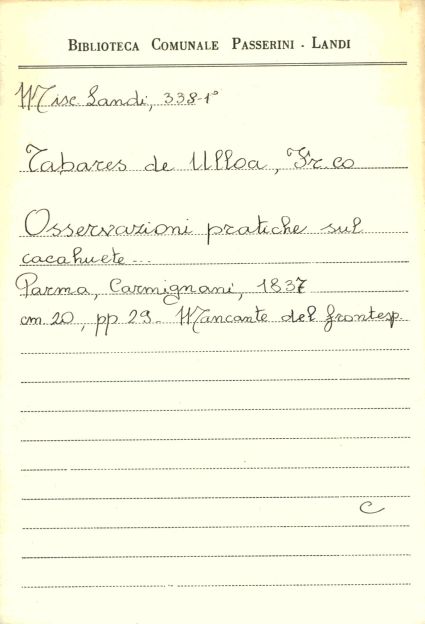 BIBLIOTECA COMUNALE PASSERINI - LANDI
Misc. Landi, 338-1°
Tabares de Ulloa, Fr.co
Osservazioni pratiche sul
cacahuete...
Parma, Carmignani, 1837
cm 20, pp 29 - Mancante del frontesp.
C